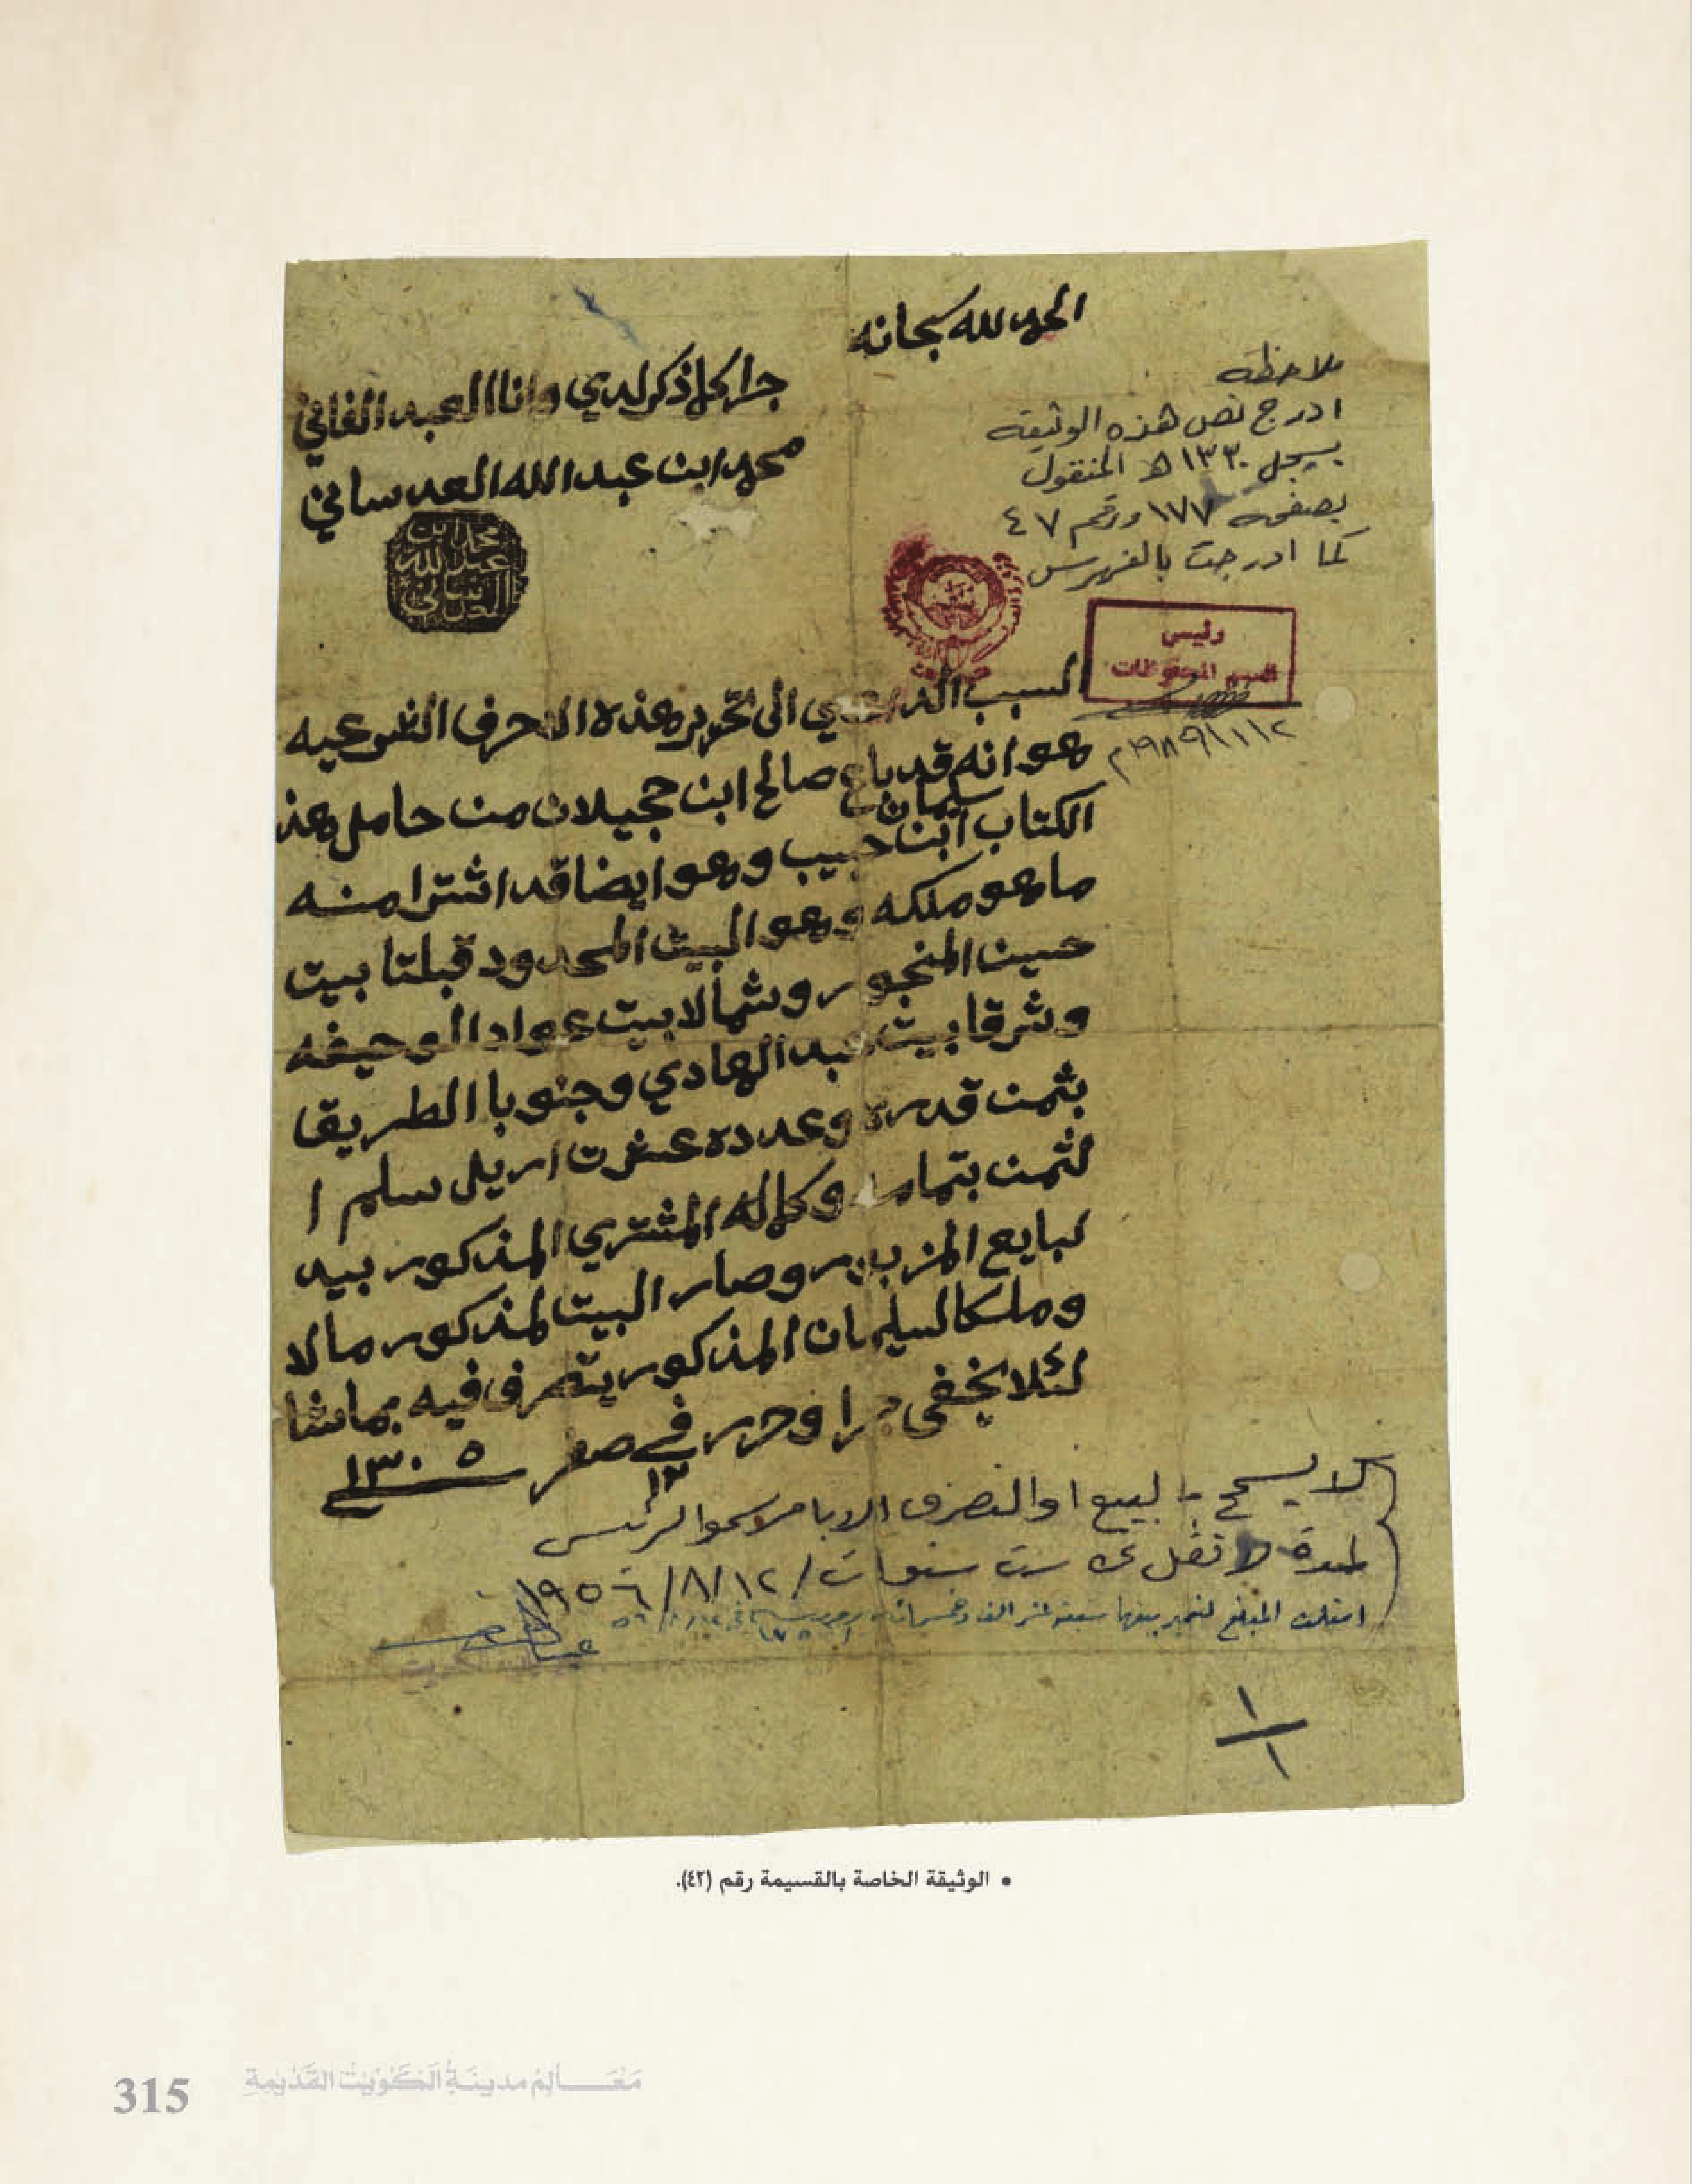 الحمد لله سبحانه
جرا كلما ذكر لدي وانا العبد الفاني
محمد ابن عبدالله العدساني
محمد بن
عبدالله
العدساني
ملاحظة
ادرج نص هذه الوثيقة
بسجل ١٣٣٠ هـ المنقول
بصفحه ١٧٧ ورقم ٤٧
كما ادرجت بالفهرس
رئيس
قسم المحفوظات
١٩٨٩/١/٢م
السبب الداعي الى تحرير هذه الاحرف الشرعيه
هو انه قد باع صالح ابن حجيلان من حامل هذ
الكتاب سليمان ابن حبيب وهو ايضا قد اشترا منه
ما هو ملكه وهو البيت المحدود قبلتا بيت
حسين المنجور وشمالا بيت عواد الوحيفه
وشرقا بيت عبد الهادي وجنوبا الطريقا
بثمن قدره وعدده عشرت اريل سلم ا
لثمن بتمامه وكماله المشتري المذكور بيد
لبايع المزبور وصار البيت لمذكور مالا
وملكا لسليمان المذكور يتصرف فيه بما شا
لئلا يخفى جرا وحرر في ١٢ صفر ١٣٠٥
لا يسمح بالبيع او التصرف الا بامر سمو الرئيس
لمدة لا تقل عن ست سنوات ١٩٥٦/٨/١٢
١
١
• الوثيقة الخاصة بالقسيمة رقم (٤٢).
315
مَعَالِمُ مدينَةِ الكُوَيْت القَدِيمَةِ